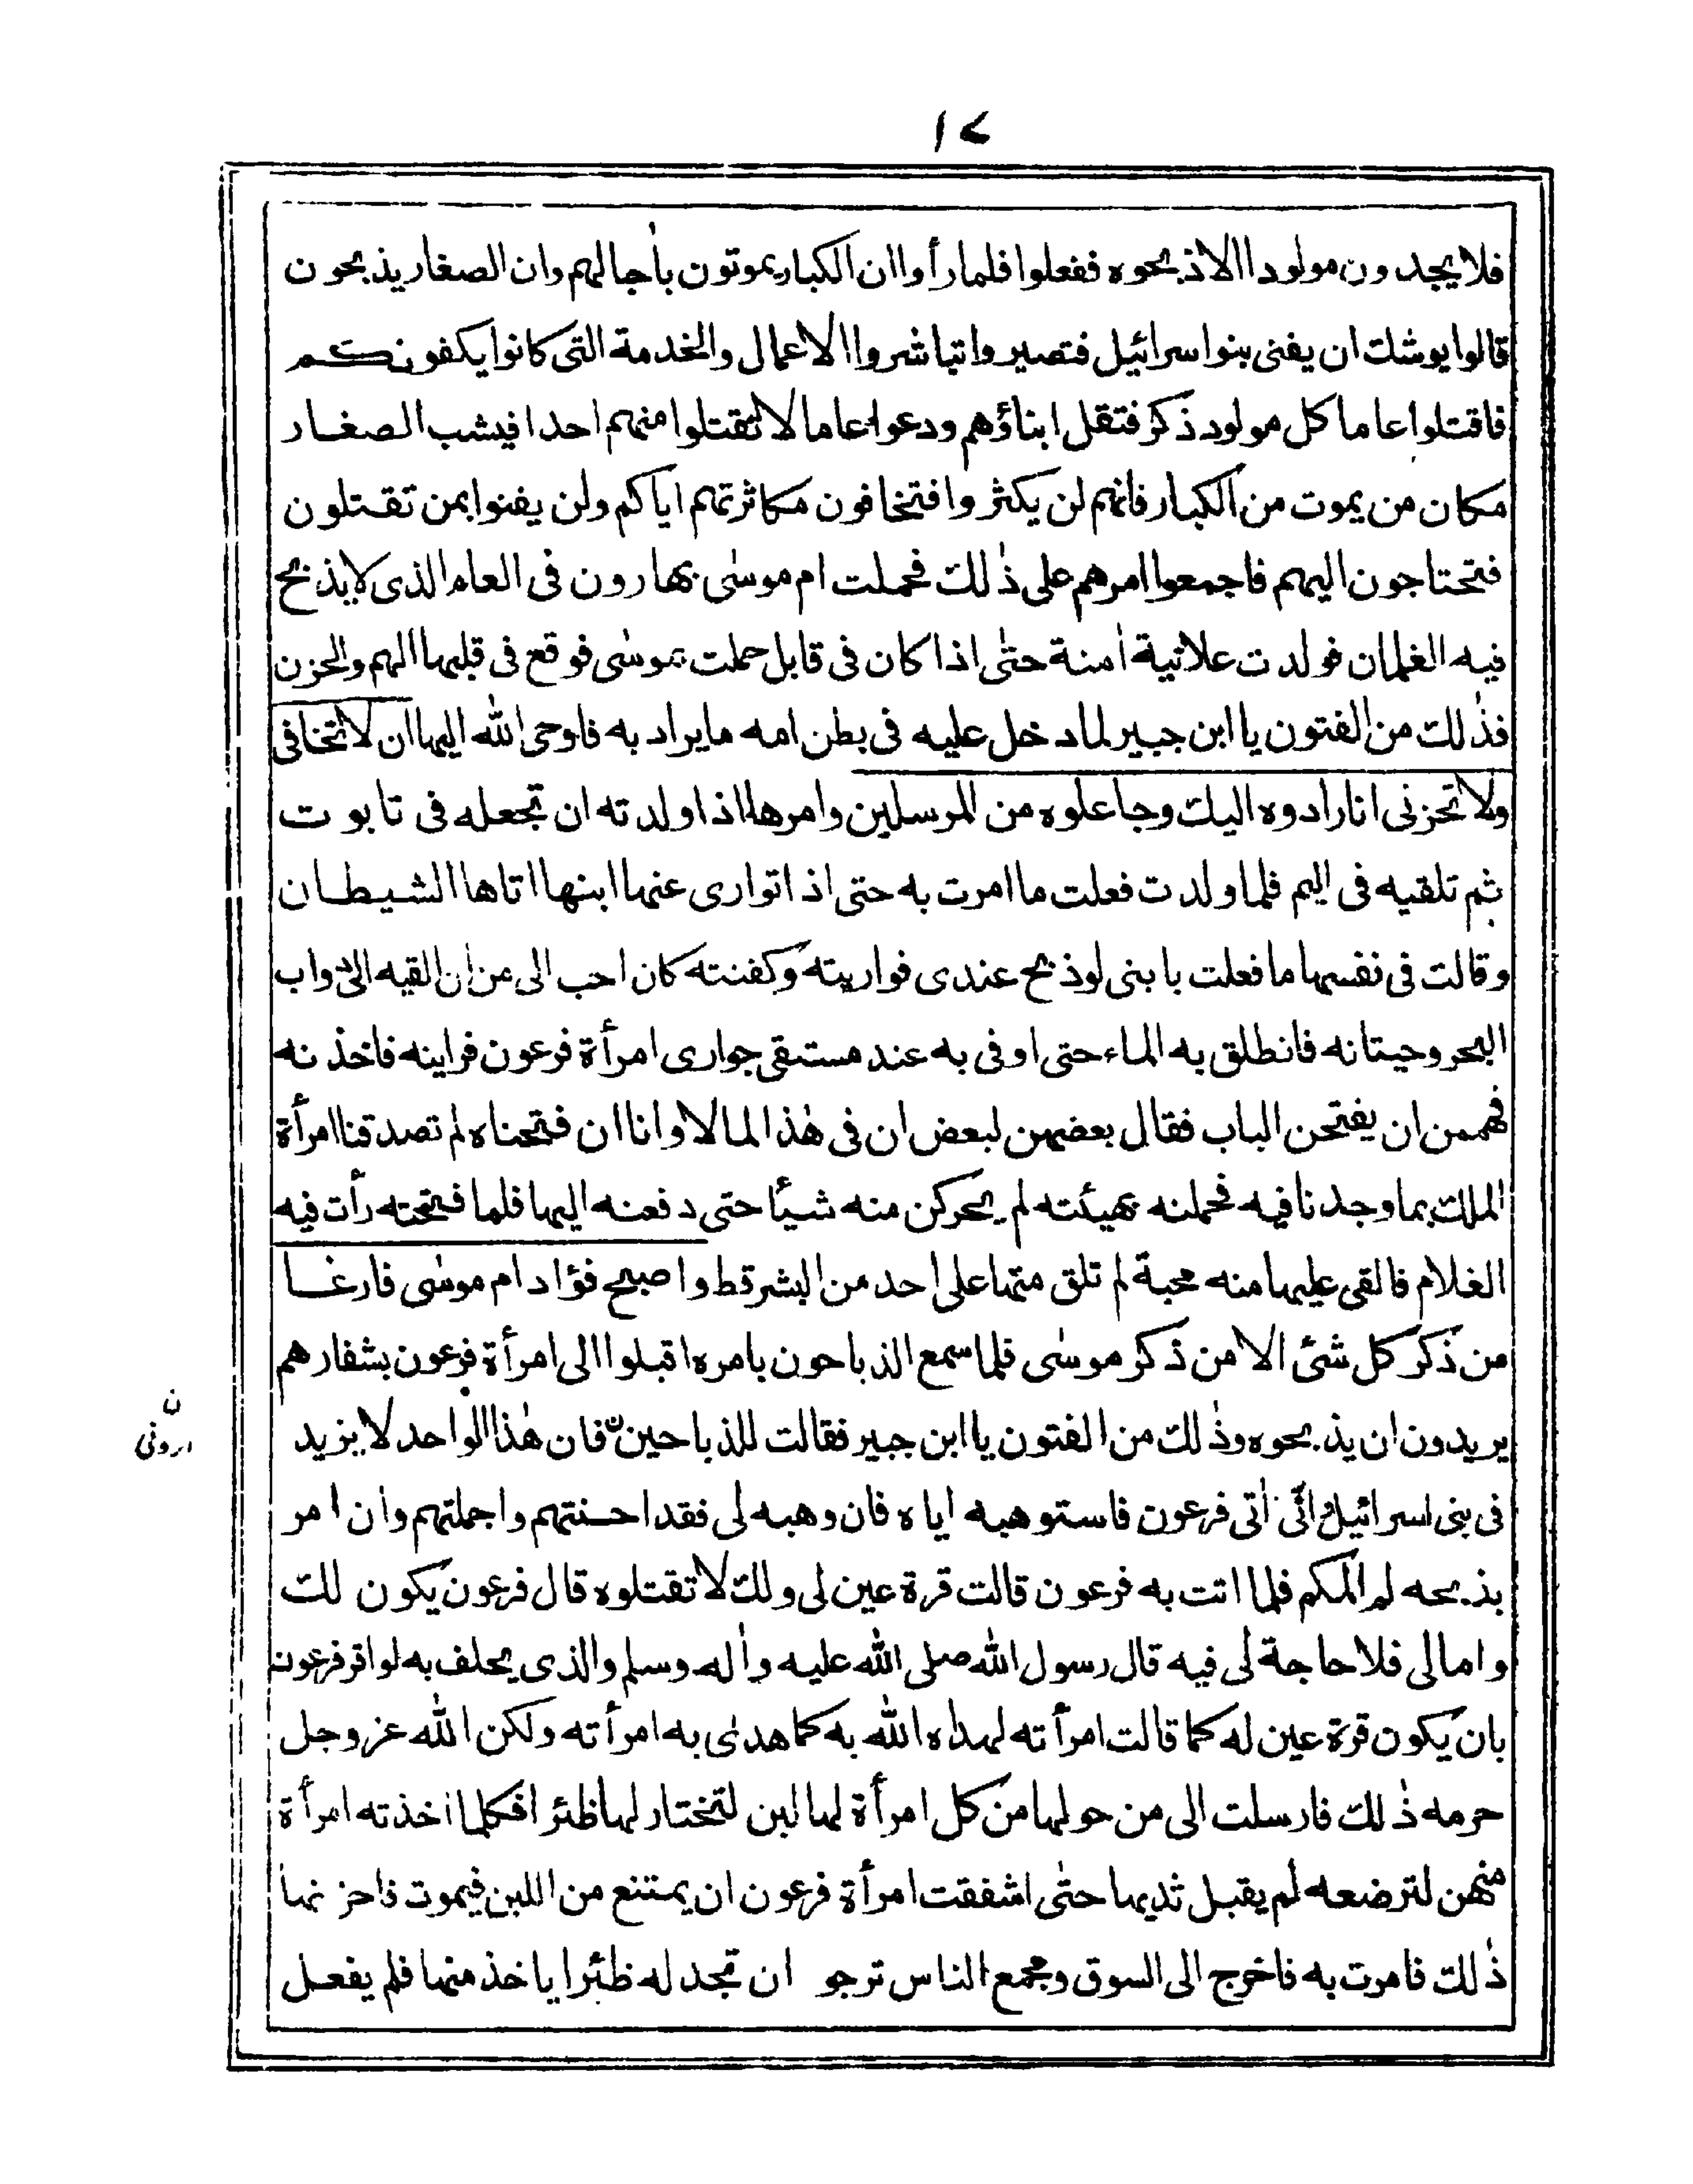 ١٢
فلا يجدون مولودا الا ذبحوه ففعلوا فلما رأوا ان الكبار يموتون بأجالهم وان الصغار يذبحون
قالوا يوشك ان يفنى بنو اسرائيل فتصيروا تباشروا الاعمال والخدمة التى كانوا يكفونكم
فاقتلوا عاما كل مولود ذكر فتقل ابناؤهم ودعوا عاما لا تقتلوا منهم احدا فيشب الصغار
مكان من يموت من الكبار فانهم لن يكثروا فتخافون مكاثرتهم اياكم ولن يفنوا بمن تقتلون
فتحتاجون اليهم فاجمعوا امرهم على ذٰلك فحملت ام موسٰى بهارون فى العام الذى لا يذبح
فيه الغلمان فولدت علانية اٰمنة حتٰى اذا كان فى قابل حملت بموسٰى فوقع فى قلبها الهم والحزن
فذٰلك من الفتون يا ابن جبير لما دخل عليه فى بطن امه ما يراد به فاوحى الله اليها ان لا تخافى
ولا تحزنى انا رادوه اليك وجاعلوه من المرسلين وامرها اذا ولدته ان تجعله فى تابوت
ثم تلقيه فى اليم فلما ولدت فعلت ما امرت به حتى اذا توارى عنها ابنها اتاها الشيطان
وقالت فى نفسها ما فعلت بابنى لو ذبح عندى فواريته وكفنته كان احب الى من ان القيه الى دواب
البحر وحيتانه فانطلق به الماء حتى اوفى به عند مستقى جوارى امرأة فرعون فراينه فاخذنه
فهممن ان يفتحن الباب فقال بعضهن لبعض ان فى هٰذا لمالا وانا ان فتحناه لم تصدقنا امرأة
الملك بما وجدنا فيه فحملنه بهيئته لم يحركن منه شيأ حتى دفعنه اليها فلما فتحته رأت فيه
الغلام فالقى عليها منه محبة لم تلق مثها على احد من البشر قط واصبح فؤاد ام موسٰى فارغا
من ذكر كل شئ الا من ذكر موسٰى فلما سمع الذباحون بامره اقبلوا الى امرأة فرعون بشفارهم
يريدون ان يذبحوه وذٰلك من الفتون يا ابن جبير فقالت للذباحينن فان هٰذا الواحد لا يزيد
ن
ارونى
فى بنى اسرائيل ائّى أتى فرعون فاستوهبه اياه فان وهبه لى فقد احسنتهم واجملتهم وان امر
بذبحه لم المكم فلما اتت به فرعون قالت قرة عين لى ولك لا تقتلوه قال فرعون يكون لك
واما لى فلا حاجة لى فيه قال رسول الله صلى الله عليه واٰله وسلم والذى يحلف به لو اقر فرعون
بان يكون قرة عين له كما قالت امرأته لهداه الله به كما هدٰى به امرأته ولكن الله عز وجل
حرمه ذٰلك فارسلت الى من حولها من كل امرأة لها لبن لتختار لها ظئرا فكلما اخذته امرأة
منهن لترضعه لم يقبل ثديها حتٰى اشفقت امرأة فرعون ان يمتنع من اللبن فيموت فاحزنها
ذٰلك فامرت به فاخرج الى السوق ومجمع الناس ترجو ان تجد له ظئرا ياخذ منها فلم يفعل